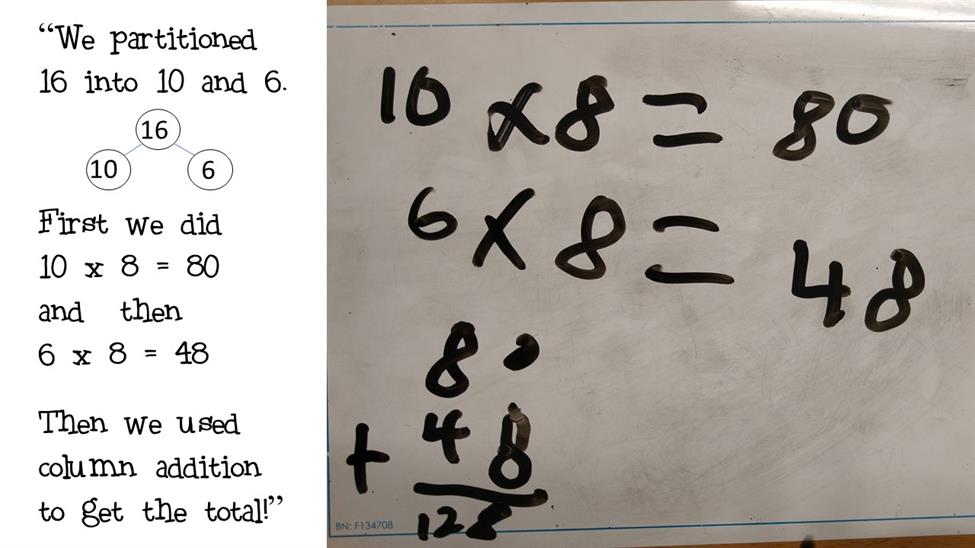 “We partitioned
16 into 10 and 6.
16
10 6
First we did
10 x 8 = 80
and then
6 x 8 = 48
Then we used
column addition
to get the total!”
10 x 8 = 80
6 x 8 = 48
80
+ 48
128
BN: F134708